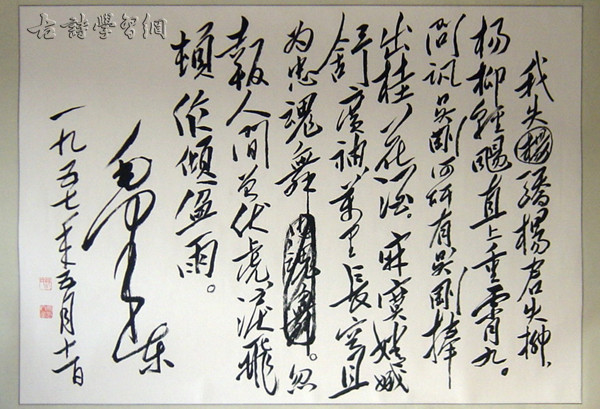 古詩學習網
我失楊驕楊君失柳,
楊柳輕颺直上重霄九。
问訊吴刚何所有吴刚捧
出桂花酒。寂寞嫦娥
舒廣袖萬里長空且
为忠魂舞。忽
報人間曾伏虎淚飛
頓作傾盆雨。
毛泽东
一九五七年五月十一日